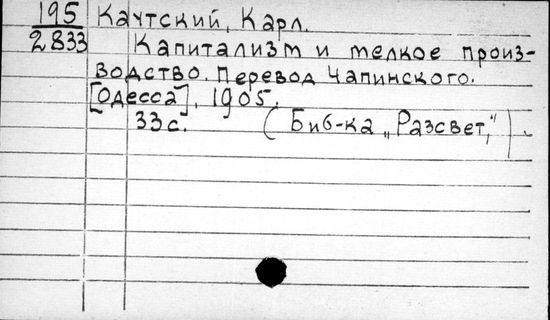 195 Каутский, Карл.
2833 Капитализм и мелкое произ-
водство. Перевод Чапинского.
[Одесса], 1905.
33 с. (Биб-ка „Разсвет,")